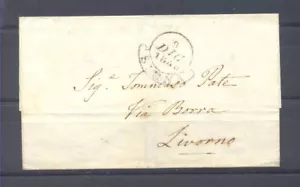 DIC
Sig.r Tommaso Pate
Via Borra
Livorno